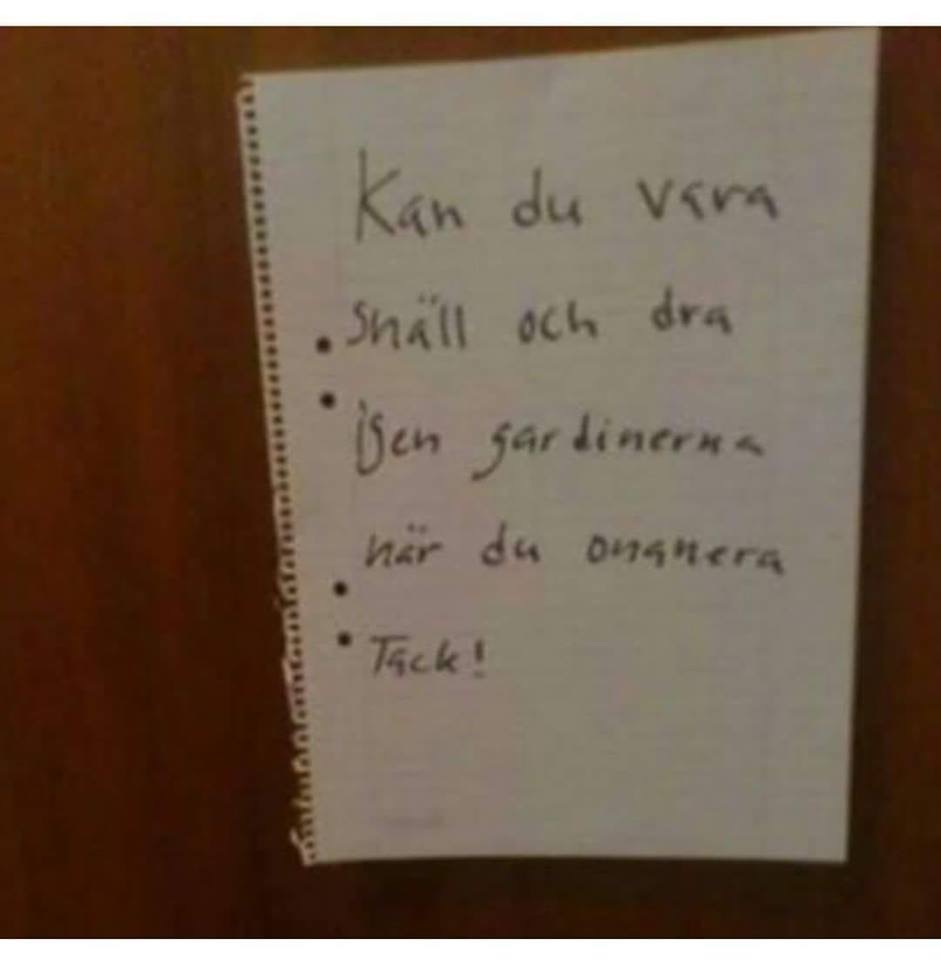 Kan du vara
snäll och dra
igen gardinerna
när du onanera
Tack!